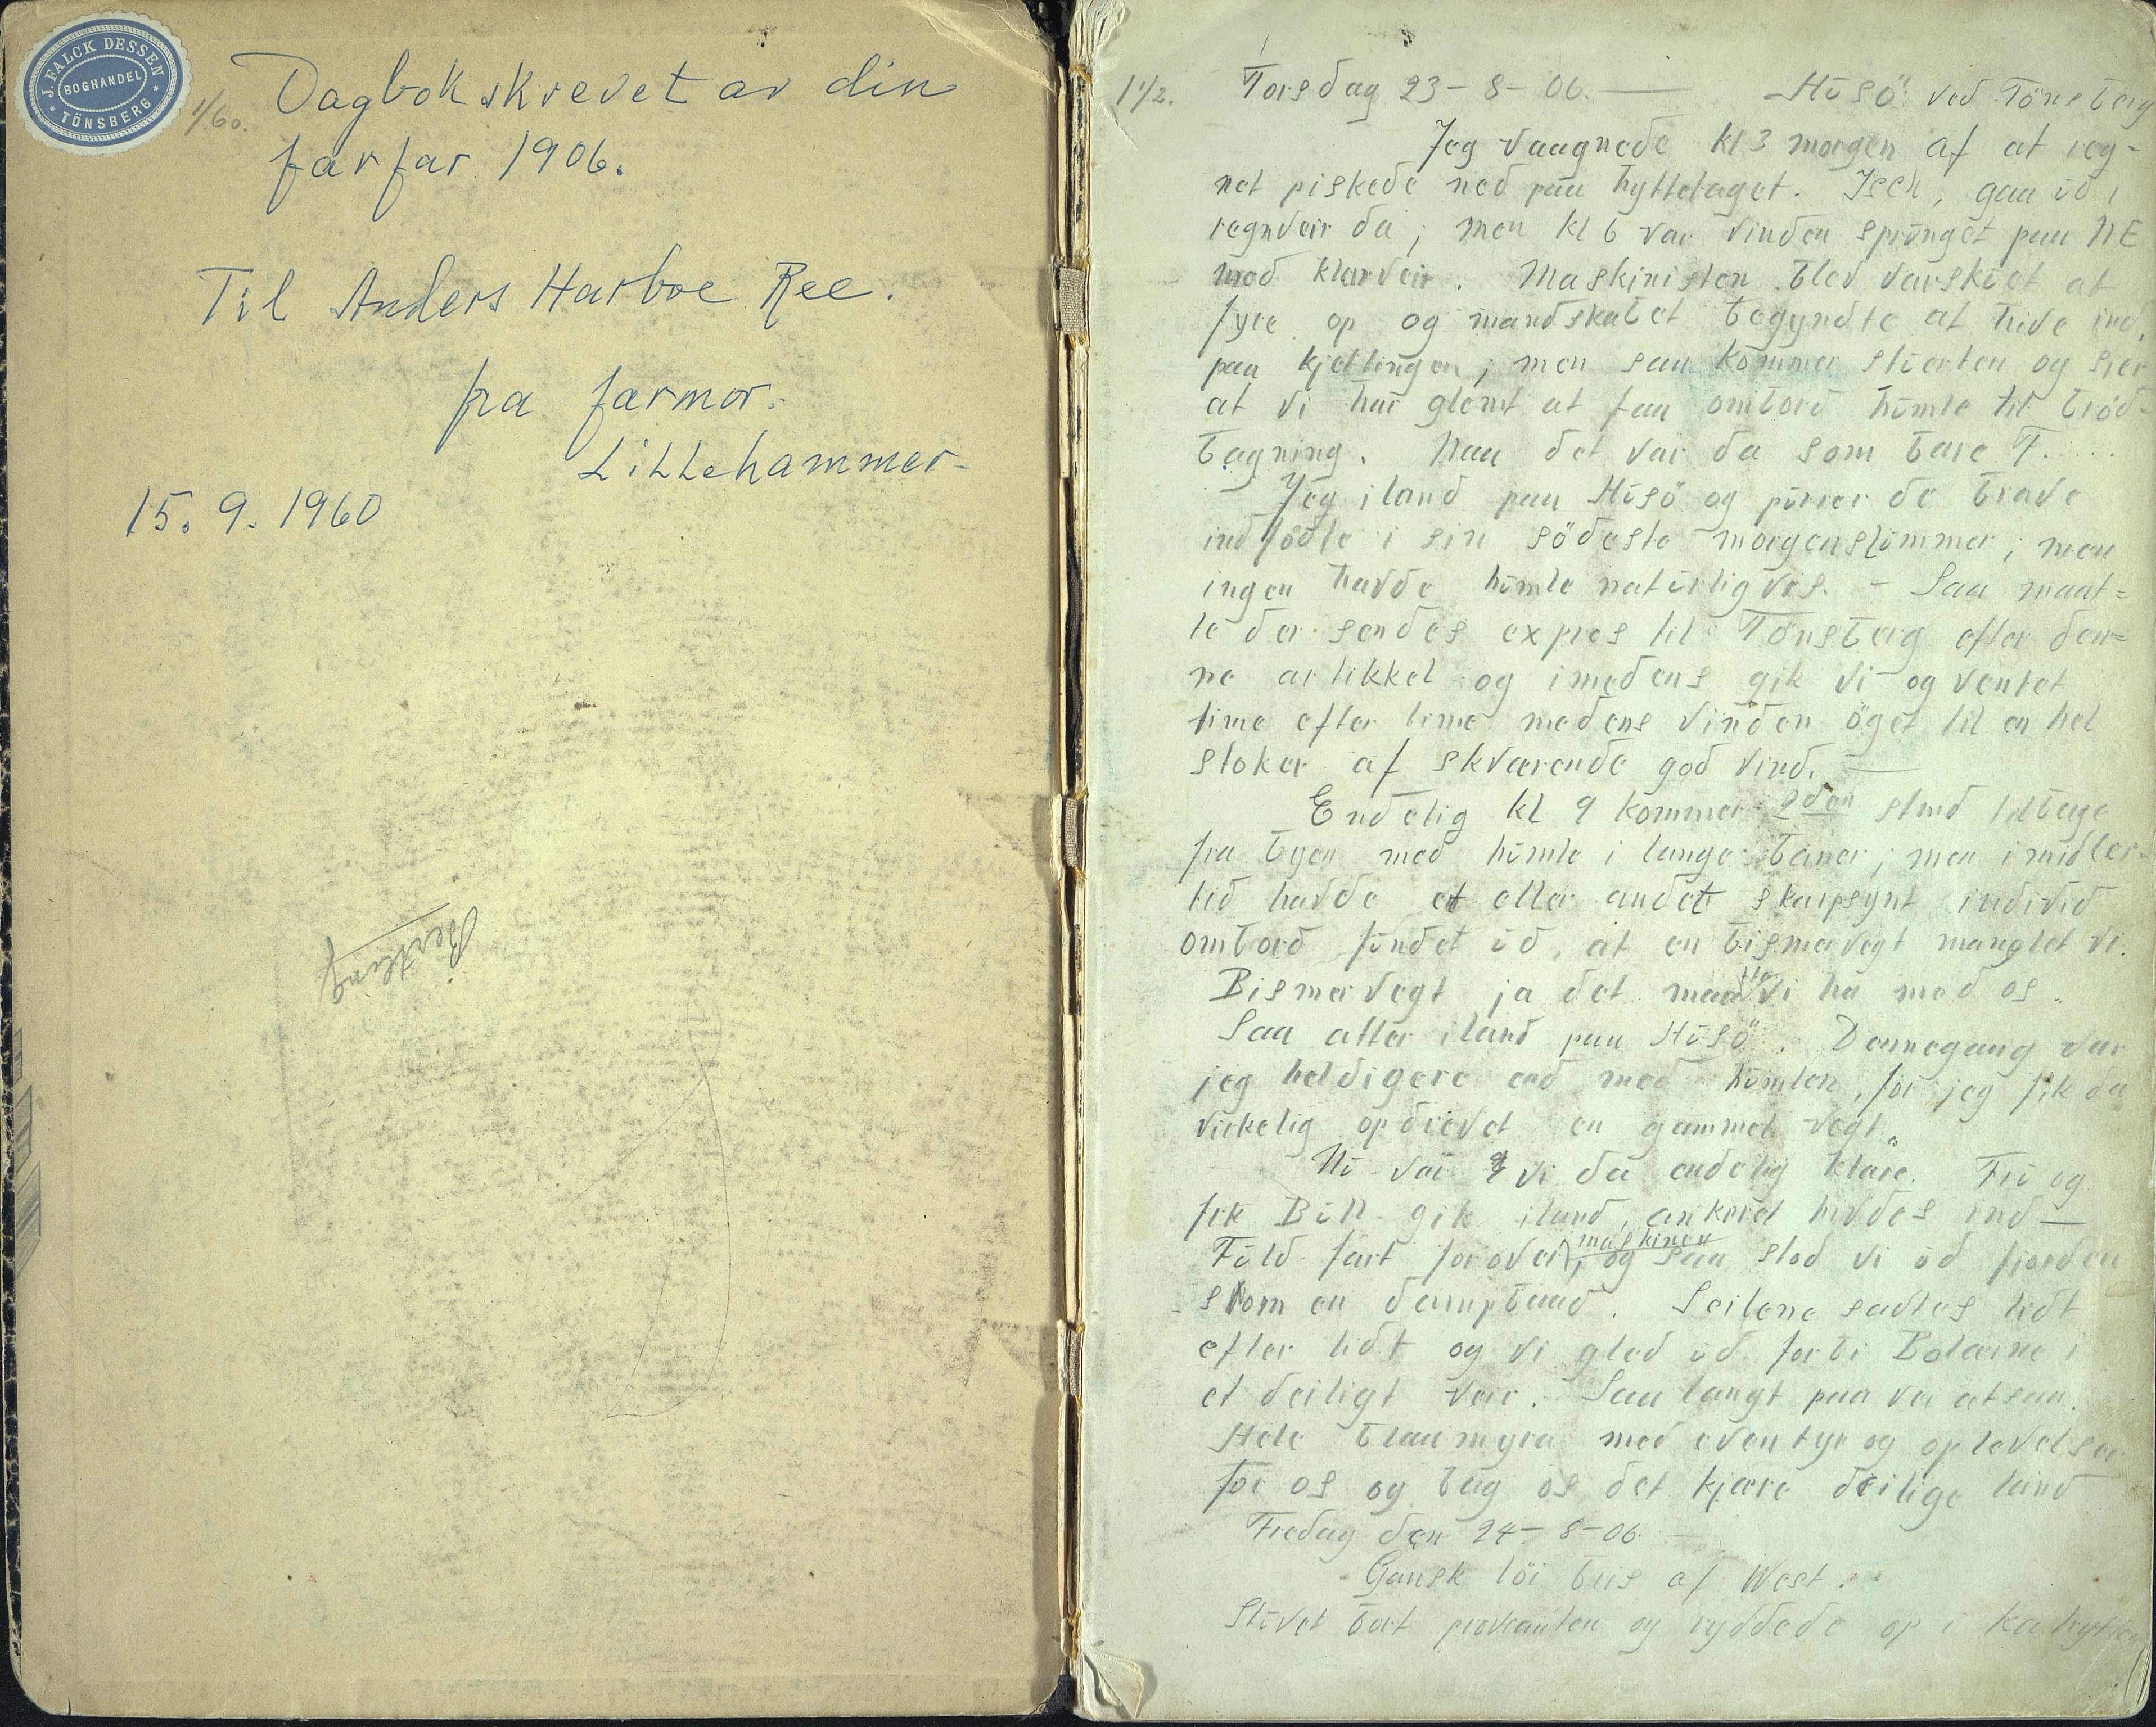 J. FALCK DESSEN
BOGHANDEL
TÖNSBERG
1/60.
Dagbok skrevet av din
farfar 1906.
Til Anders Harboe Ree.
fra farmor.
Lillehammer-
15. 9. 1960
Bertling
1 1/2.
Torsdag 23-8-06. — Husö ved Tönsberg
Jeg vaagnede kl 3 morgen af at reg-
net piskede ned paa hyttetaget. Isch, gaa ud i
regnveir da; men kl 6 var vinden sprunget paa NE
med klarveir. Maskinisten blev varskuet at
fyre op og mandskabet begyndte at hive ind
paa kjettingen; men saa kommer stuerten og sier
at vi har glemt at faa ombord humle til bröd-
bagning. Naa det var da som bare F.....
Jeg iland paa Husö og purrer de brave
indfödte i sin södeste morgenslummer; men
ingen havde humle naturligvis. - Saa maat=
te der sendes expres til Tönsberg efter den=
ne artikkel og imedens gik vi og ventet
time efter time medens vinden öget til en hel
stoker af skværende god vind. —
Endelig kl 9 kommer 2den stmd tilbage
fra byen med humle i lange baner; men imidler-
tid havde et eller andet skarpsynt individ
ombord fundet ud, at en bismervegt manglet vi.
Bismervegt ja det maatte vi ha med os.
Saa atter iland paa Husö. Dennegang var
jeg heldigere end med humlen, for jeg fik da
virkelig opdrevet en gammel vegt.
Nu var vi da endelig klare. Fru og
frk Bull gik iland, ankeret hivdes ind —
Fuld fart forover i maskinen, og saa stod vi ud fjorden
som en dampbaad. Seilene sattes lidt
efter lidt og vi gled ud forbi Bolærne i
et deiligt veir. Saa langt paa vei atsaa.
Hele blaaimyra med eventyr og oplevelser
for os og bag os det kjære deilige land
Fredag den 24-8-06. —
Gansk löi bris af West.
Stuvet bort provianten og ryddede op i kahytten